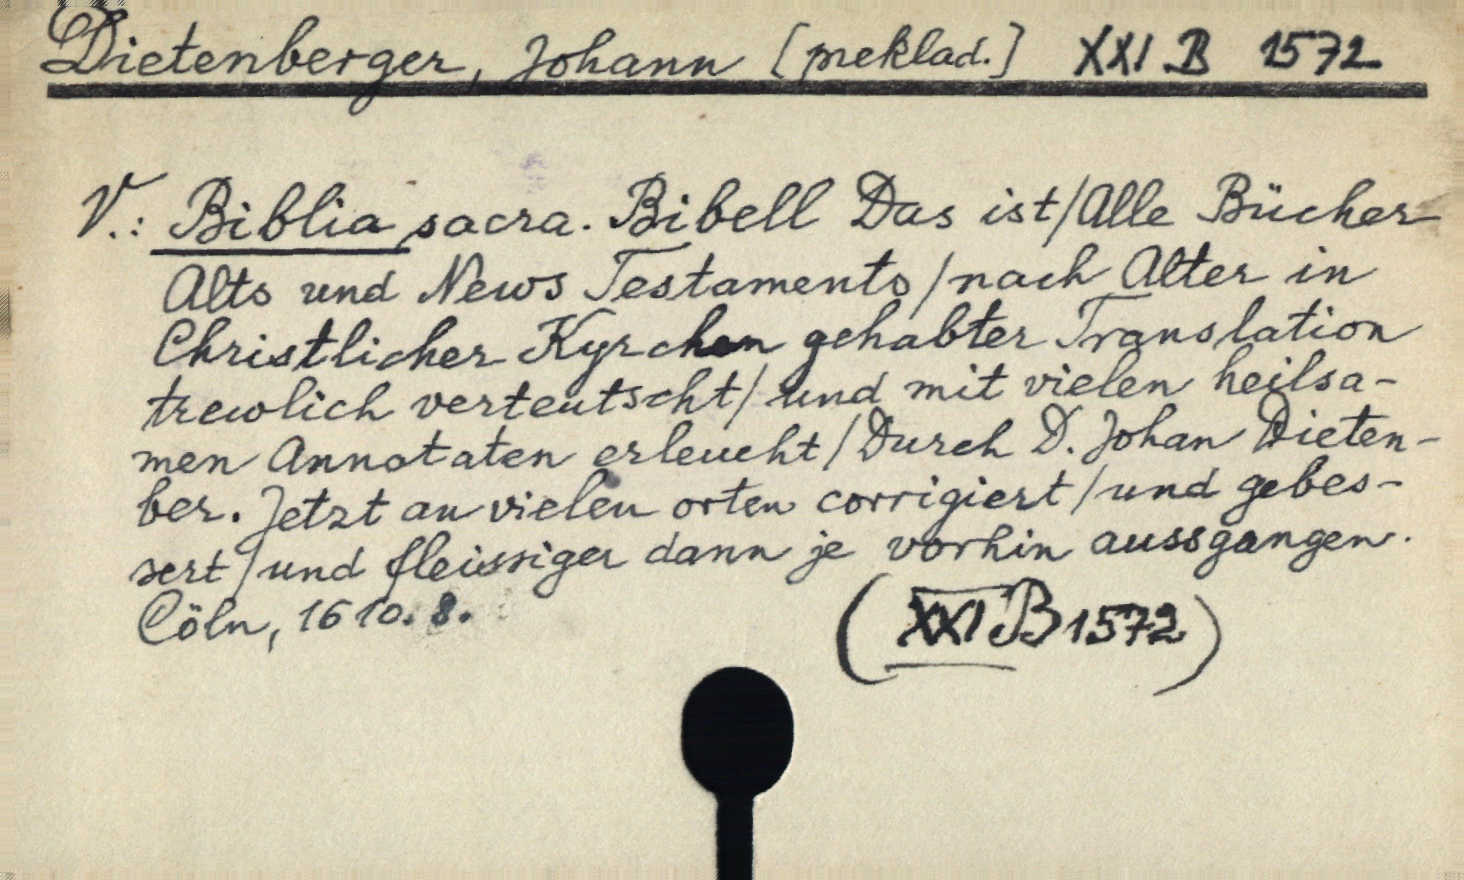 Dietenberger, Johann [preklad.] XXI B 1572
V.: Biblia sacra. Bibell Das ist/Alle Bücher
Alts und News Testaments/nach Alter in
Christlicher Kyrchen gehabter Translation
trewlich verteutscht/und mit vielen heilsa-
men Annotaten erleucht/Durch D. Johan Dieten-
ber. Jetzt an vielen orten corrigiert/und gebes-
sert/und fleissiger dann je vorhin aussgangen.
Cöln, 1610. 8.
(XXI B 1572)